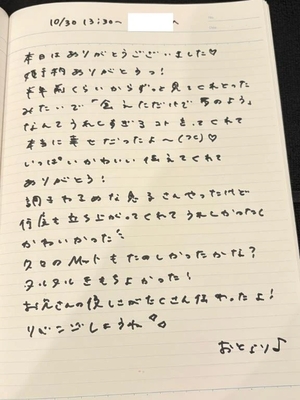 10/30 13:30〜 へ
本日はありがとうございました♡
指名ありがとうっ!
半年前くらいからずっと見てくれとった
みたいで「会えただけで夢のよう」
なんてうれしすぎるコトをくれて
本当に幸せだったよ〜(つ⊂)♡
いっぱいかわいい伝えてくれて
ありがとう!
何度も立ち上がってくれてうれしかったし
かわいかった
タロのMットもたのしかったかな?
ヌルヌルきもちよかった!
お兄さんの優しさがたくさん伝わったよ!
リベンジしようね
おとより♪